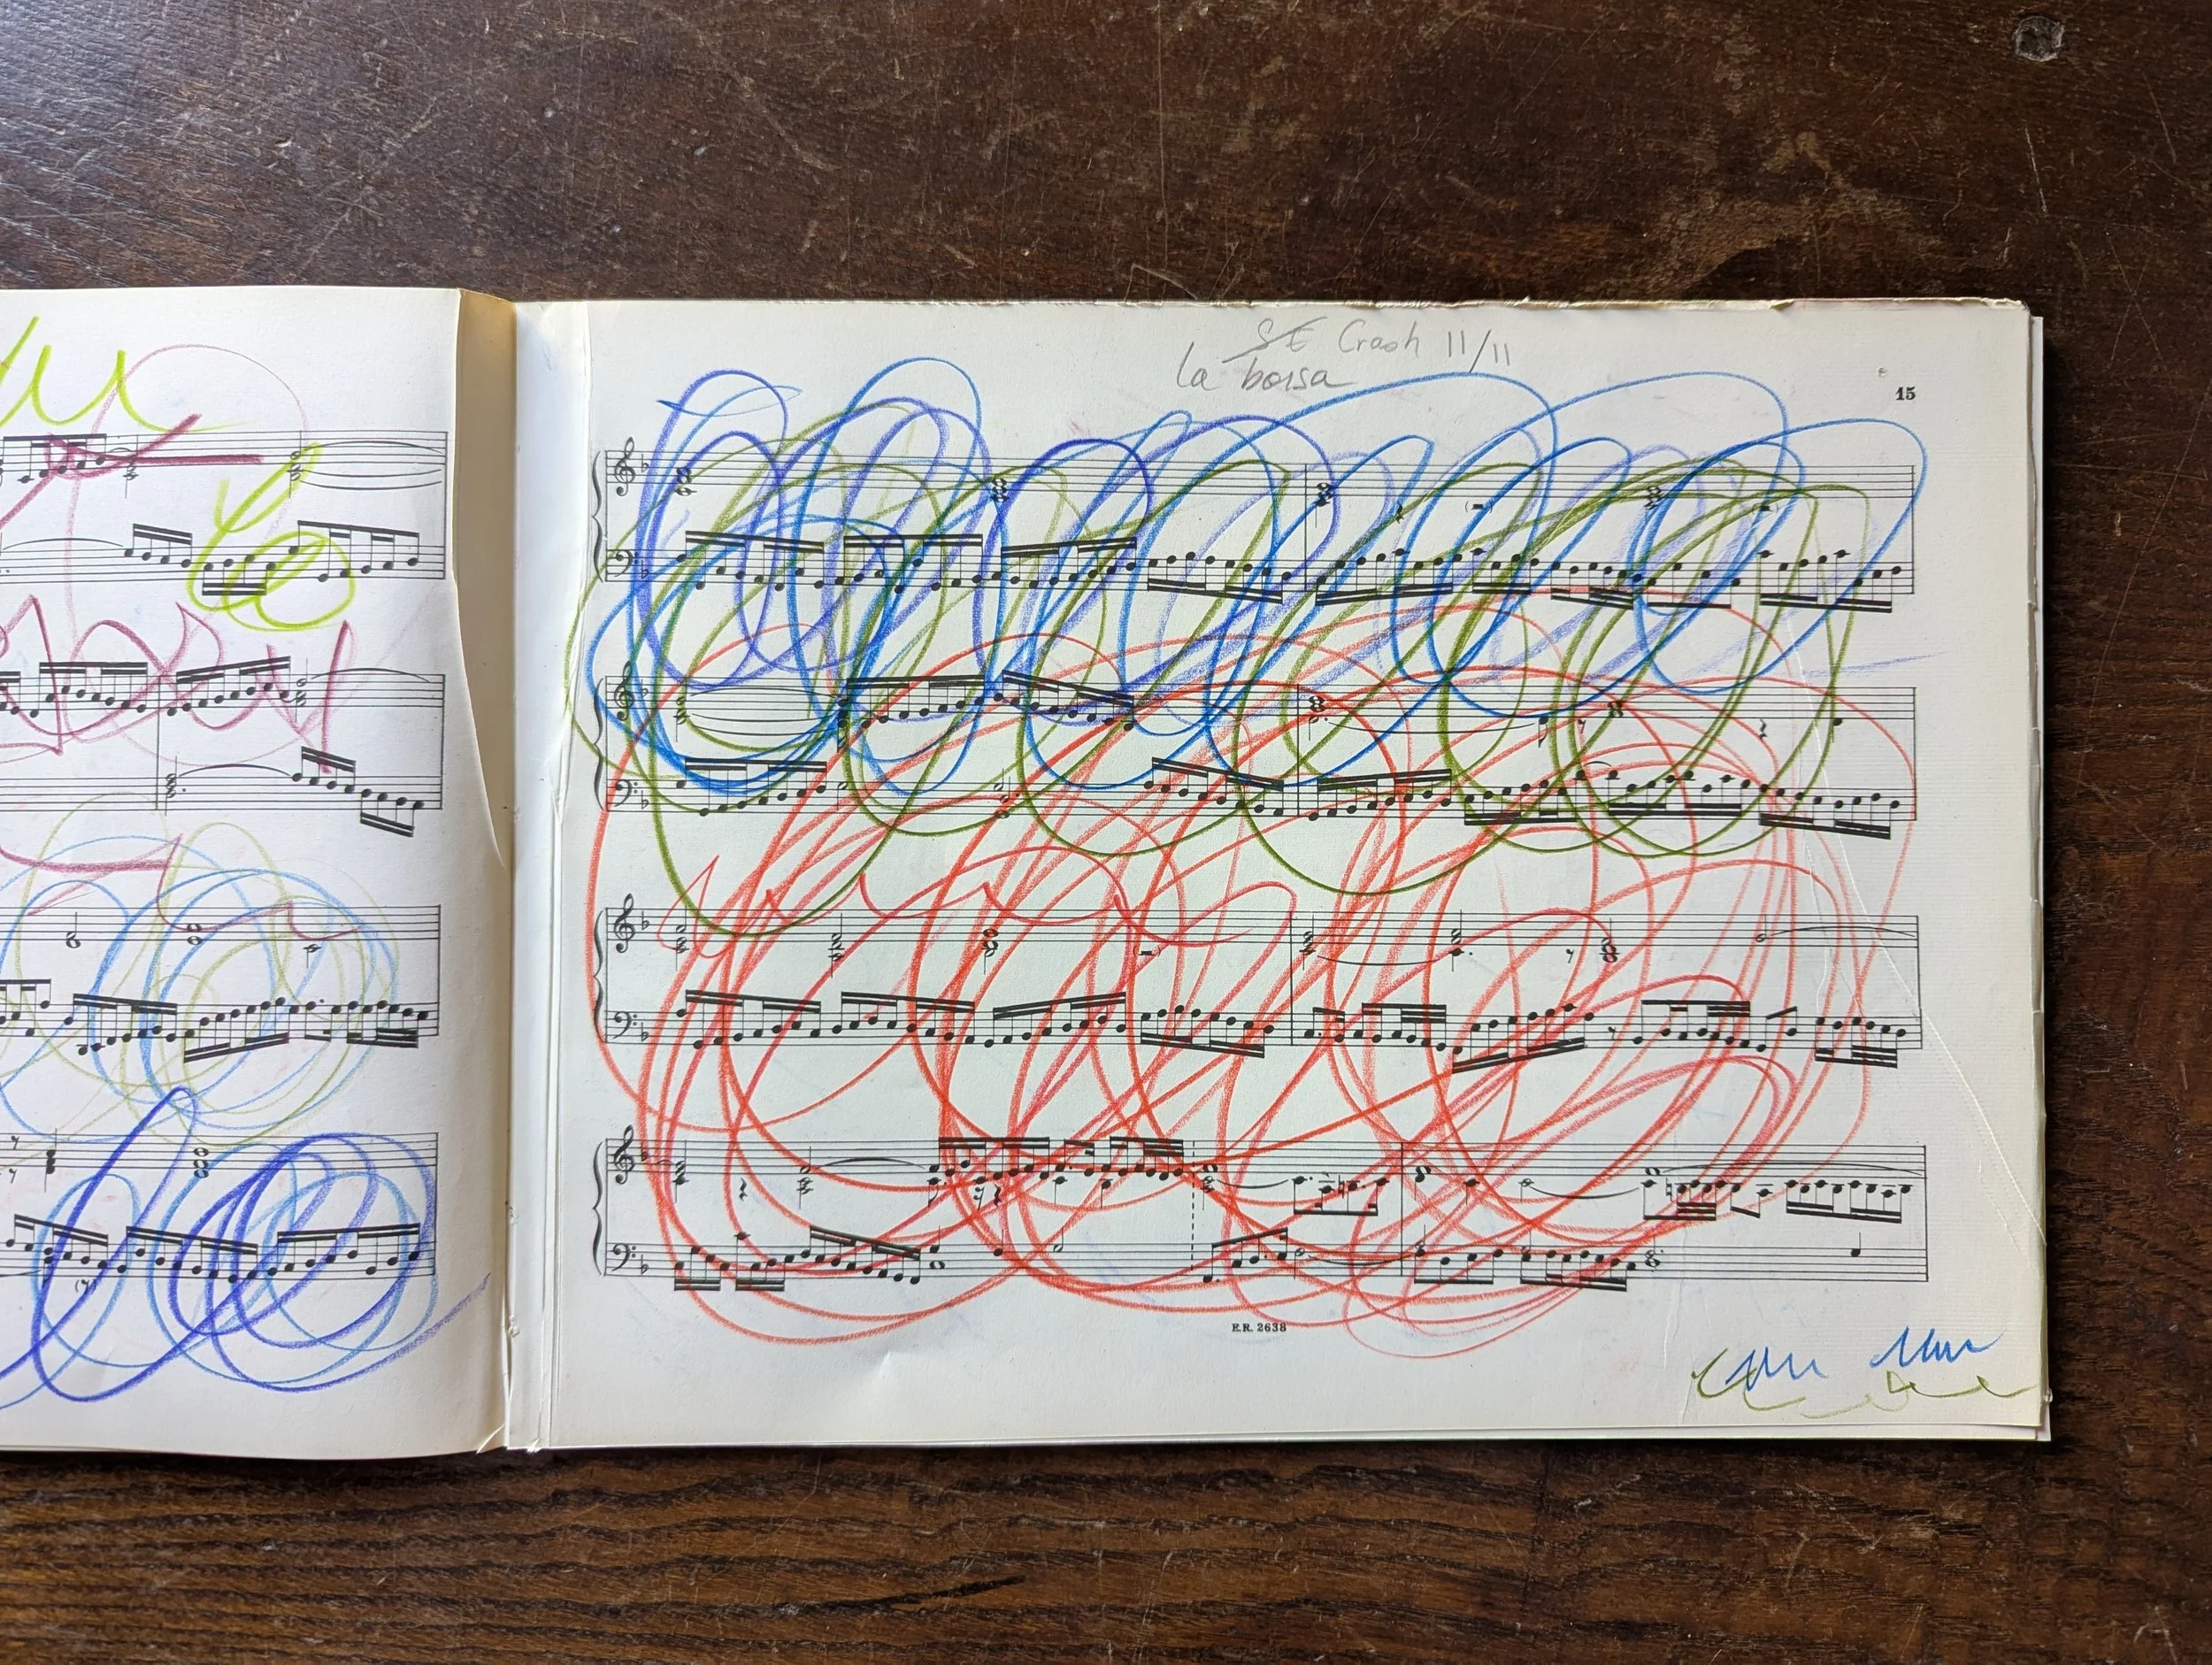 SE Crash 11/11
la borsa
15
E.R. 2638